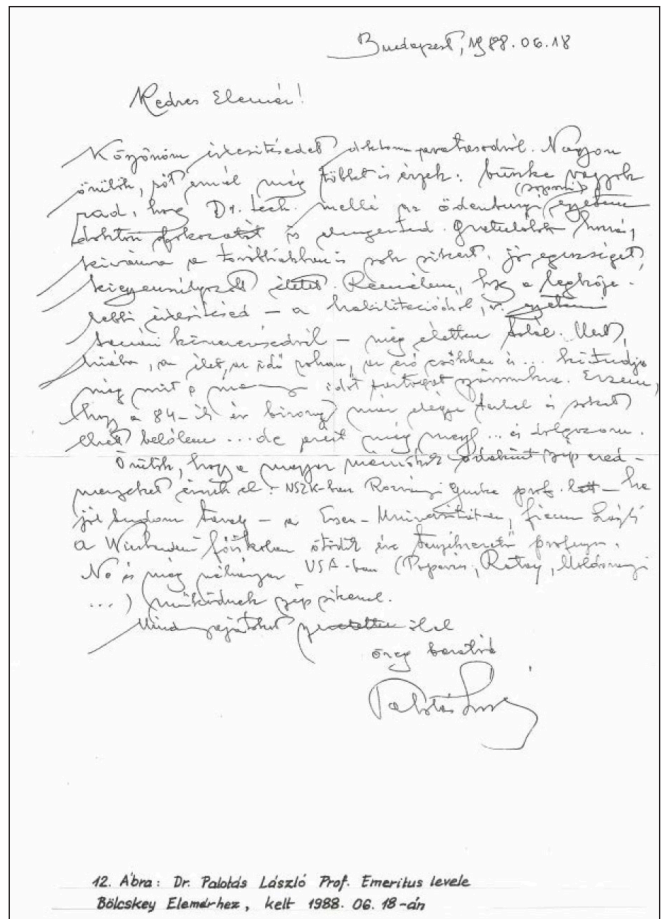 Budapest, 1988.06.18
Kedves Elemér!
Köszönöm értesítésedet doktorrá avatásodról. Nagyon
örülök, sőt ennél még többet is érzek: büszke vagyok
(soproni)
rád, hogy Dr. tech. mellé az ödenburgi egyetem
doktori fokozatát is elnyerted. Gratulálok hozzá,
kívánva a továbbiakban is sok sikert, jó egészséget,
kiegyensúlyozott életet. Remélem, hogy a legköze-
lebbi értesítésed – a habilitációdról, v. egyetemi
tanári kinevezésedről – még életben talál. Mert,
hiába, az élet, az idő rohan, az erő csökken és ... ki tudja
még mit s mennyi időt tartogat számunkra. Érzem,
hogy a 84-ik év bizony már eléggé terhel és sokat
elvett belőlem ... de azért még megy ... és dolgozom.
Örülök, hogy a magyar mérnökök odakint szép ered-
ményeket érnek el. NSZK-ban Rozványi prof. lett – ha
jól tudom tavaly – a Essen-i Universitäten, fiam
a főiskolán ötödik éve professzor.
No és még néhányan USA-ban (Popovics,
...) működnek szép sikerrel.
Mindnyájatokat szeretettel ölel
öreg barátod
Palotás László
12. Ábra: Dr. Palotás László Prof. Emeritus levele
Bölcskey Elemérhez, kelt 1988. 06. 18-án